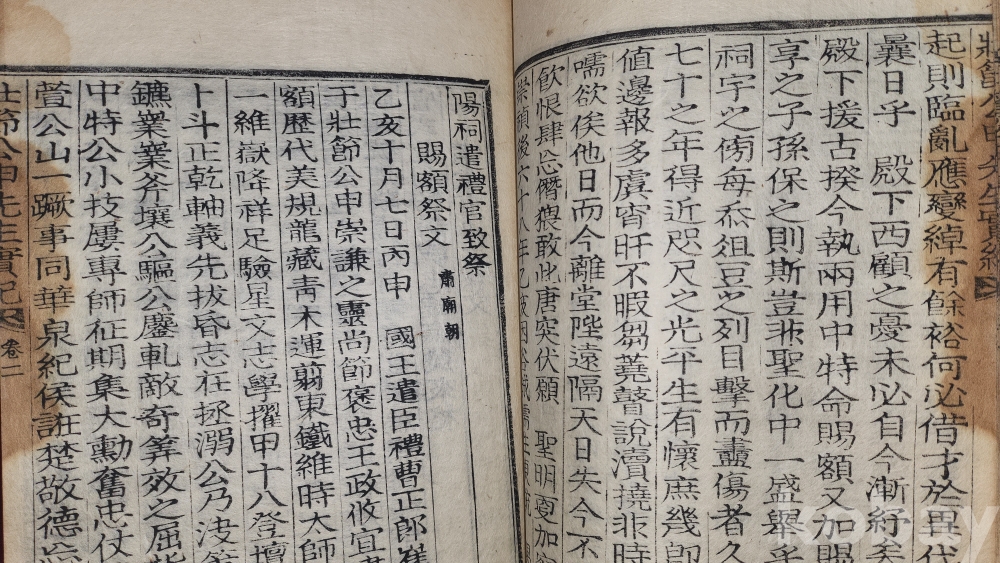 壯節公申先生實紀
起則臨亂應變綽有餘裕何必借才於異代
曩日乎 殿下西顧之憂未必自今漸紓矣
殿下援古揆今執兩用中特命賜額又加賜
享之子孫保之則斯豈非聖化中一盛舉乎
祠宇之傍每忝俎豆之列日擊而盡傷者久
七十之年得近咫尺之光平生有懷庶幾
值邊報多虞宵旰不暇芻蕘瞽說瀆撓非時
嚅欲俟他日而今離堂陛遠隔天日失今不
飮恨肆忘僭猥敢此唐突伏願 聖明更加
崇頑後六十八年乙
陽祠遣禮官致祭
賜額祭文 肅廟朝
乙亥十月七日丙申 國王遣臣禮曹正郎崔
于壯節公申崇謙之靈尚節褒忠王政攸宜
額歷代美規龍藏青木運翦東鐵維時太師
一維嶽降祥足驗星文志學擢甲十八登壇
卜斗正乾軸義先拔昏志在拯溺公乃決
鑣業業斧攘公驅公鏖軋敵奇筭效之屈
中特公小技屢專師征期集大勳奮忠仗
萱公山一蹶事同華泉紀侯誑楚敬德
壯節公申先生實紀 卷二
koreay